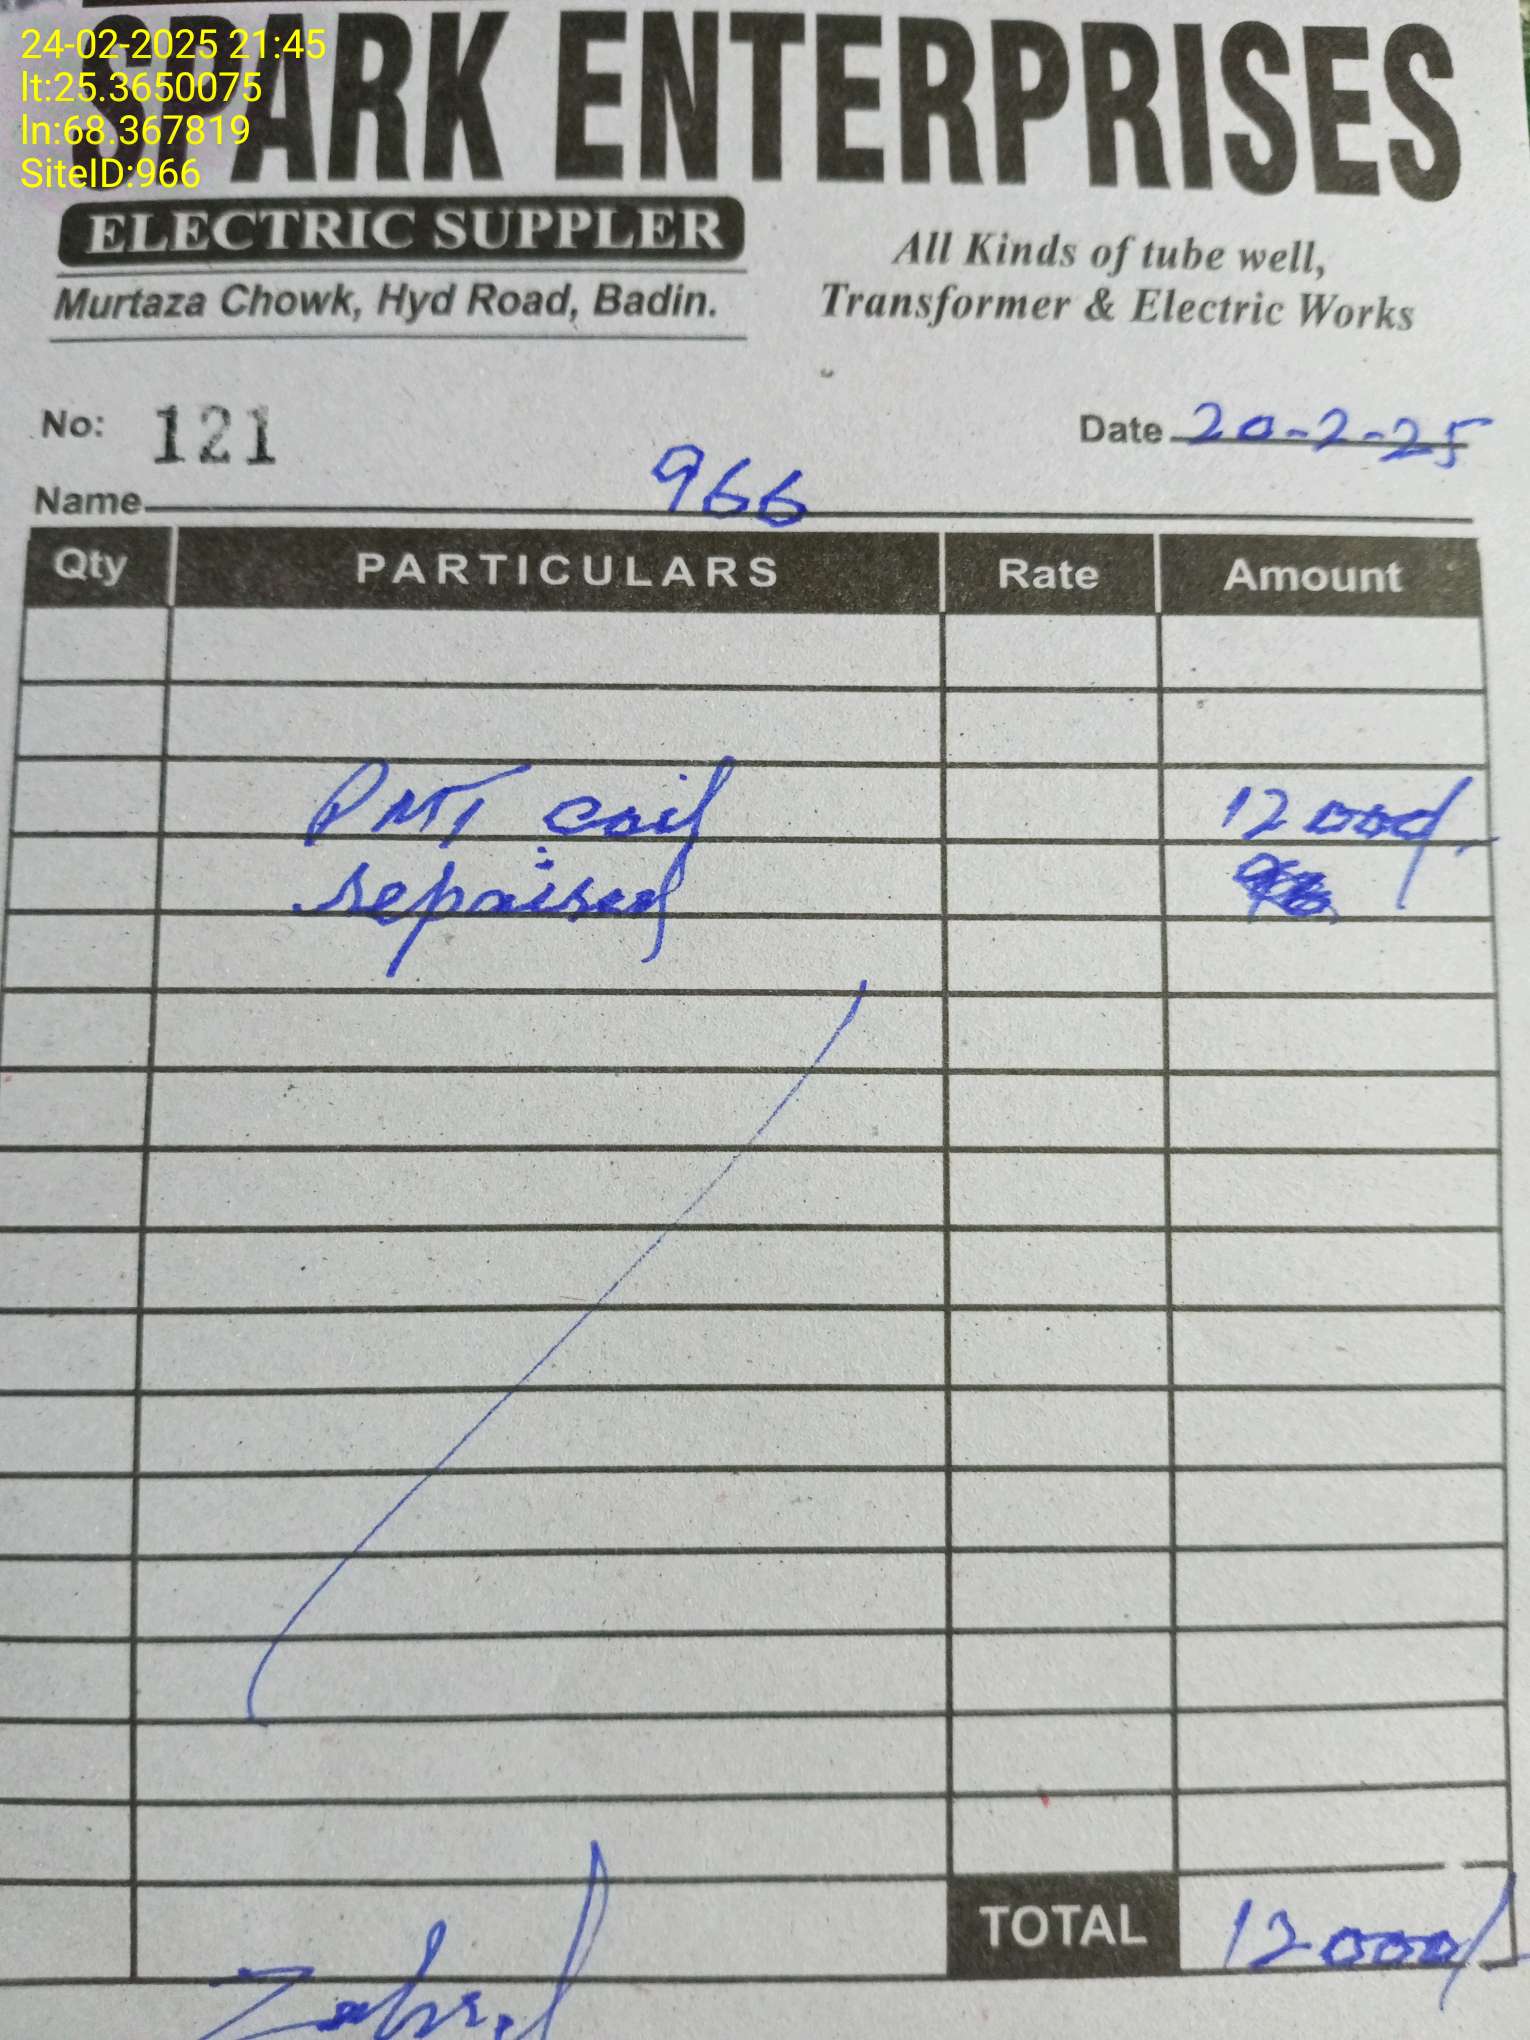 24-02-2025 21:45
lt:25.3650075
ln:68.367819
SiteID:966
SPARK ENTERPRISES
ELECTRIC SUPPLER
Murtaza Chowk, Hyd Road, Badin.
All Kinds of tube well,
Transformer & Electric Works
No: 121
Date 20-2-25
Name 966
Qty PARTICULARS Rate Amount
PMT coil 12000/-
repaired
TOTAL 12000/-